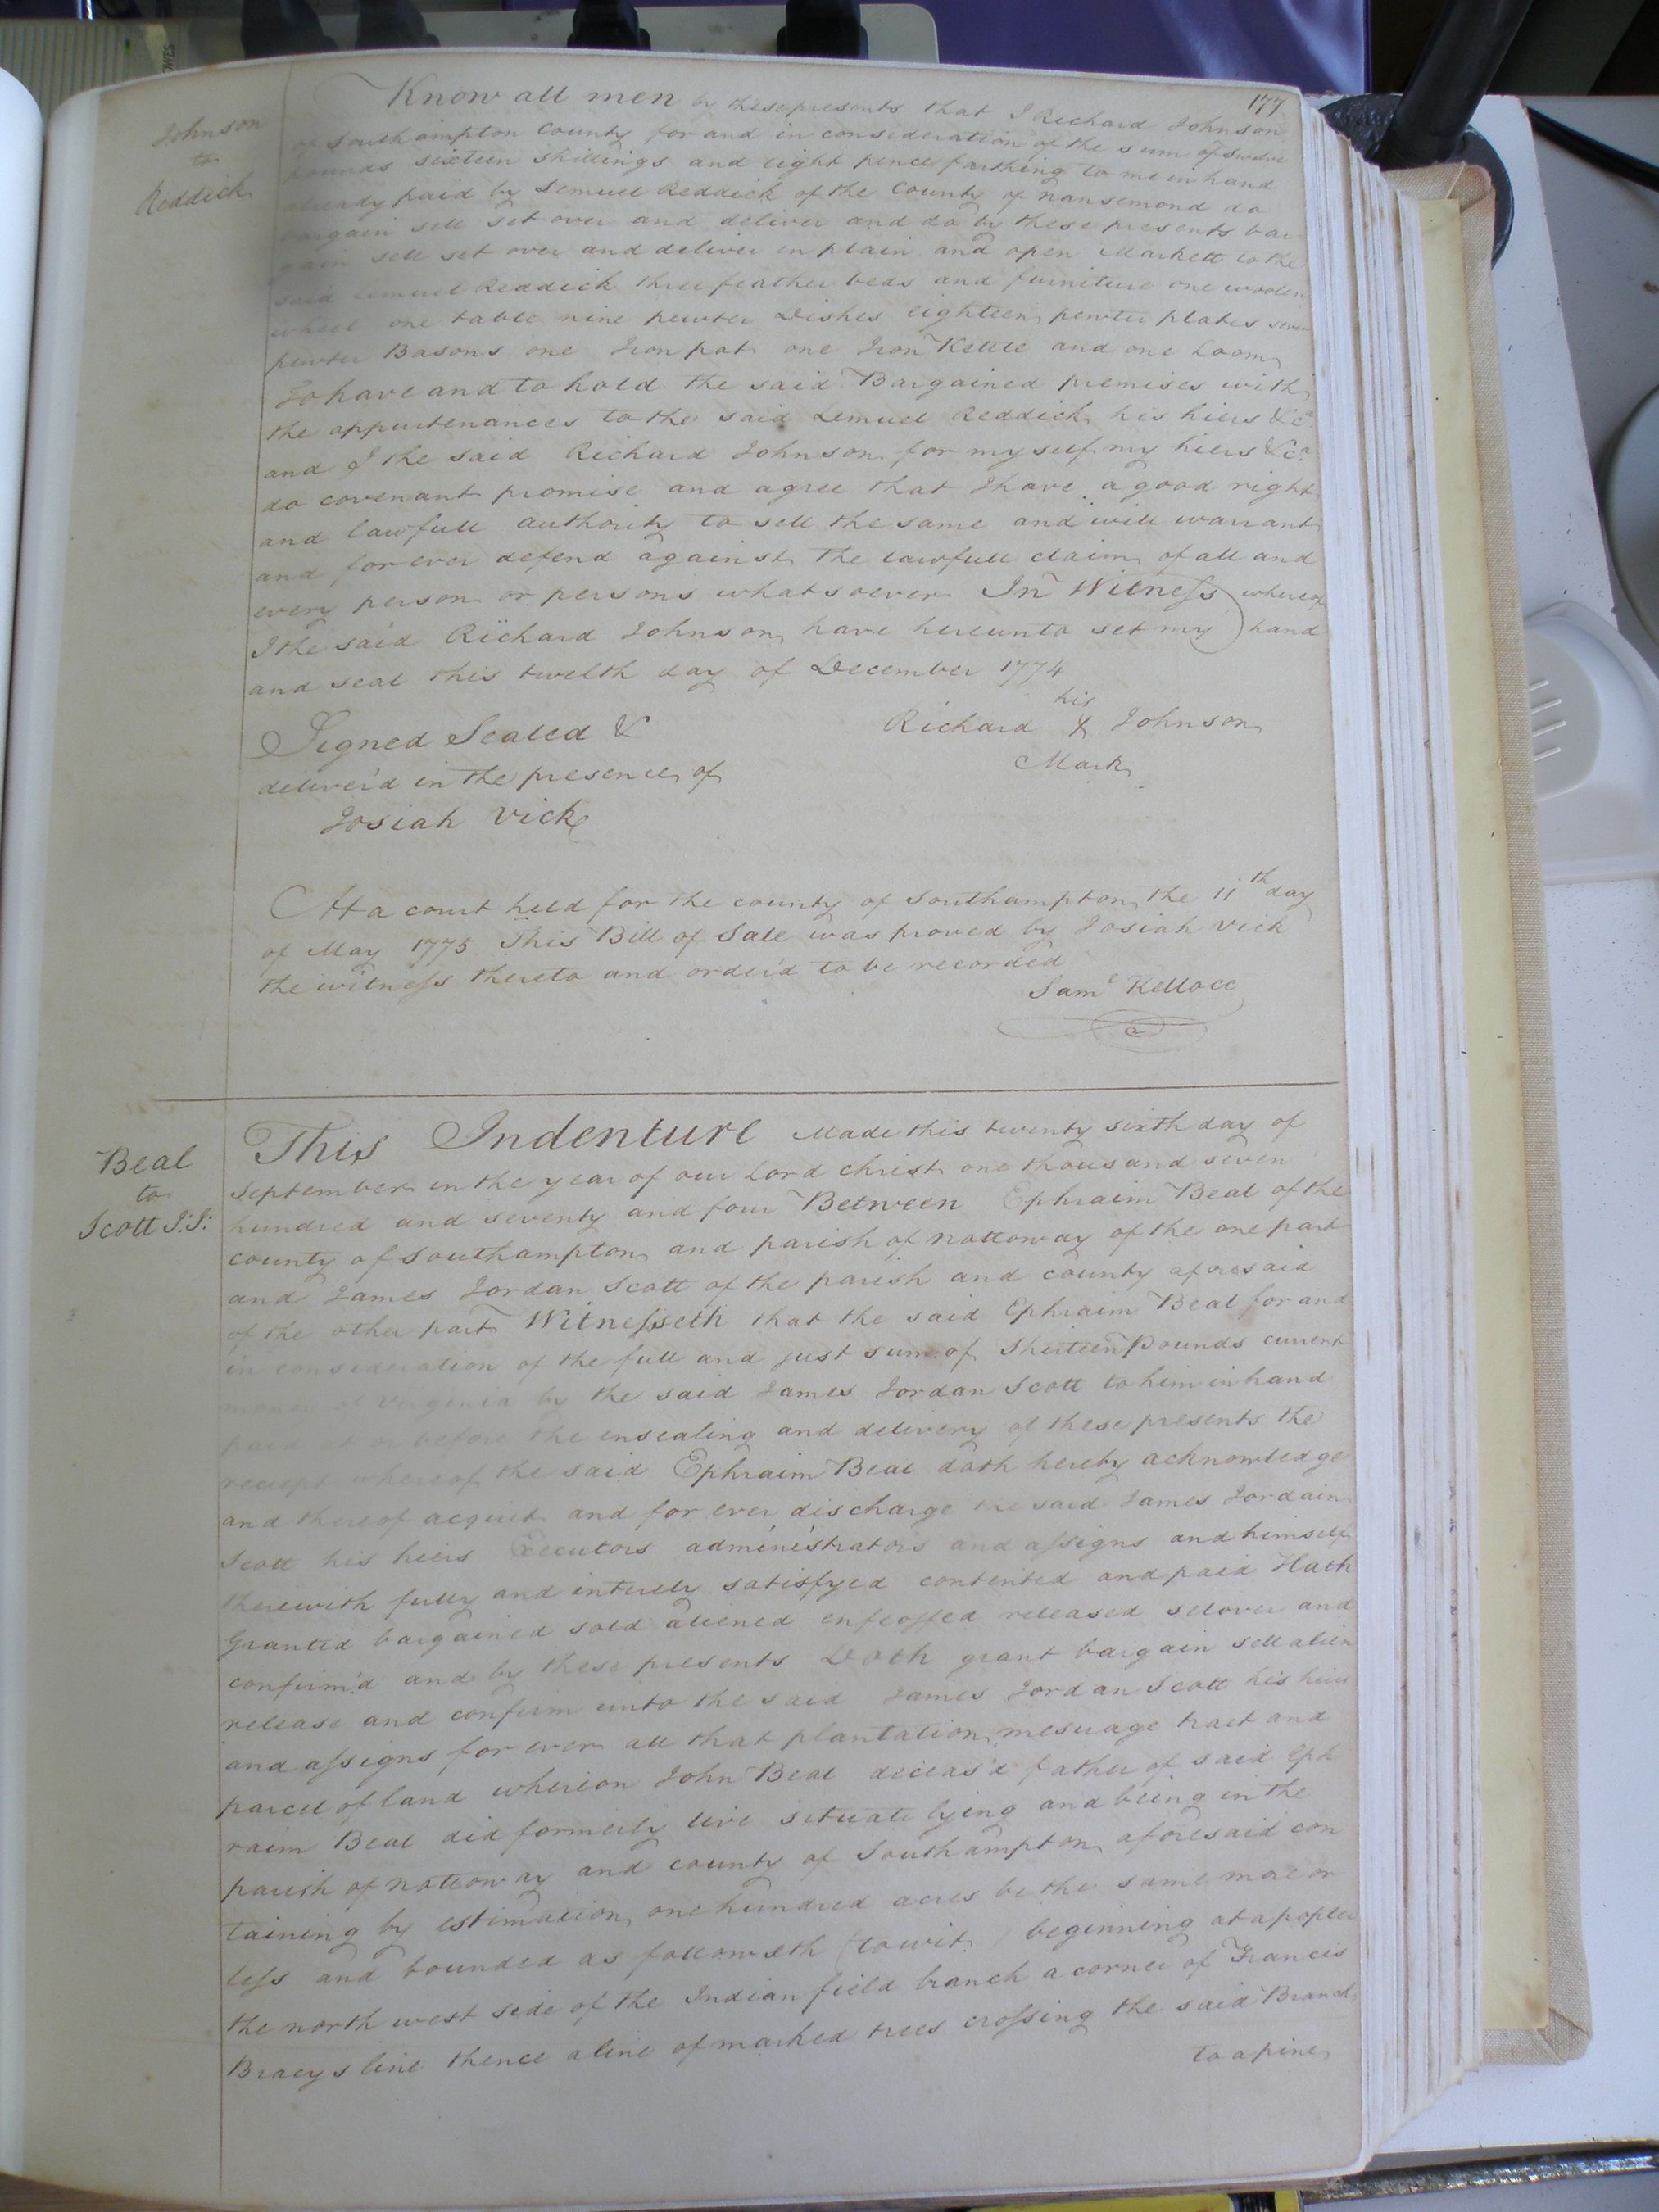 177
Johnson
to
Reddick
Know all men by these presents that I Richard Johnson
of Southampton County for and in consideration of the sum of twelve
pounds sixteen shillings and eight pence farthing to me in hand
already paid by Lemuel Reddick of the County of nansemond do
bargain sell set over and deliver and do by these presents bar
gain sell set over and deliver in plain and open Markett to the
said Lemuel Reddick three feather beds and furniture one woolen
wheel one table nine pewter Dishes eighteen pewter plates seven
pewter Basons one Iron pot one Iron Kettle and one Loom
To have and to hold the said Bargained premises with
the appurtenances to the said Lemuel Reddick his hiers &ca
and I the said Richard Johnson for my self my hiers &ca
do covenant promise and agree that I have a good right
and lawfull authority to sell the same and will warrant
and for ever defend against the lawfull claim of all and
every person or persons whatsoever In Witness whereof
I the said Richard Johnson have hereunto set my hand
and seal this twelth day of December 1774
his
Richard X Johnson
Mark
Signed Sealed &
deliver'd in the presence of
Josiah Vick
At a court held for the county of Southampton the 11th day
of May 1775 This Bill of Sale was proved by Josiah Vick
the witness thereto and order'd to be recorded
Saml Kello cc
Beal
to
Scott J:J:
This Indenture Made this twenty sixth day of
September in the year of our Lord christ one thousand seven
hundred and seventy and four Between Ephraim Beal of the
county of Southampton and parish of nottoway of the one part
and James Jordan Scott of the parish and county aforesaid
of the other part Witnesseth that the said Ephraim Beal for and
in consideration of the full and just sum of Pounds current
money of Virginia by the said James Jordan Scott to him in hand
paid at or before the ensealing and delivery of these presents the
receipt whereof the said Ephraim Beal doth hereby acknowledge
and thereof acquit and for ever discharge the said James Jordain
Scott his heirs Executors administrators and assigns and himself
therewith fully and intirely satisfyed contented and paid Hath
Granted bargained sold aliened enfeoffed released setover and
confirm'd and by these presents Doth grant bargain sell alien
release and confirm unto the said James Jordan Scott his heirs
and assigns for ever all that plantation mesuage tract and
parcel of land whereon John Beal deceas'd father of said Eph
raim Beal did formerly live situate lying and being in the
parish of nottoway and county of Southampton aforesaid con
taining by estimation one hundred acres be the same more or
less and bounded as followeth (towit) beginning at a popler
the north west side of the Indian field branch a corner of Francis
Bracys line thence a line of marked trees crossing the said Branch
to a pine